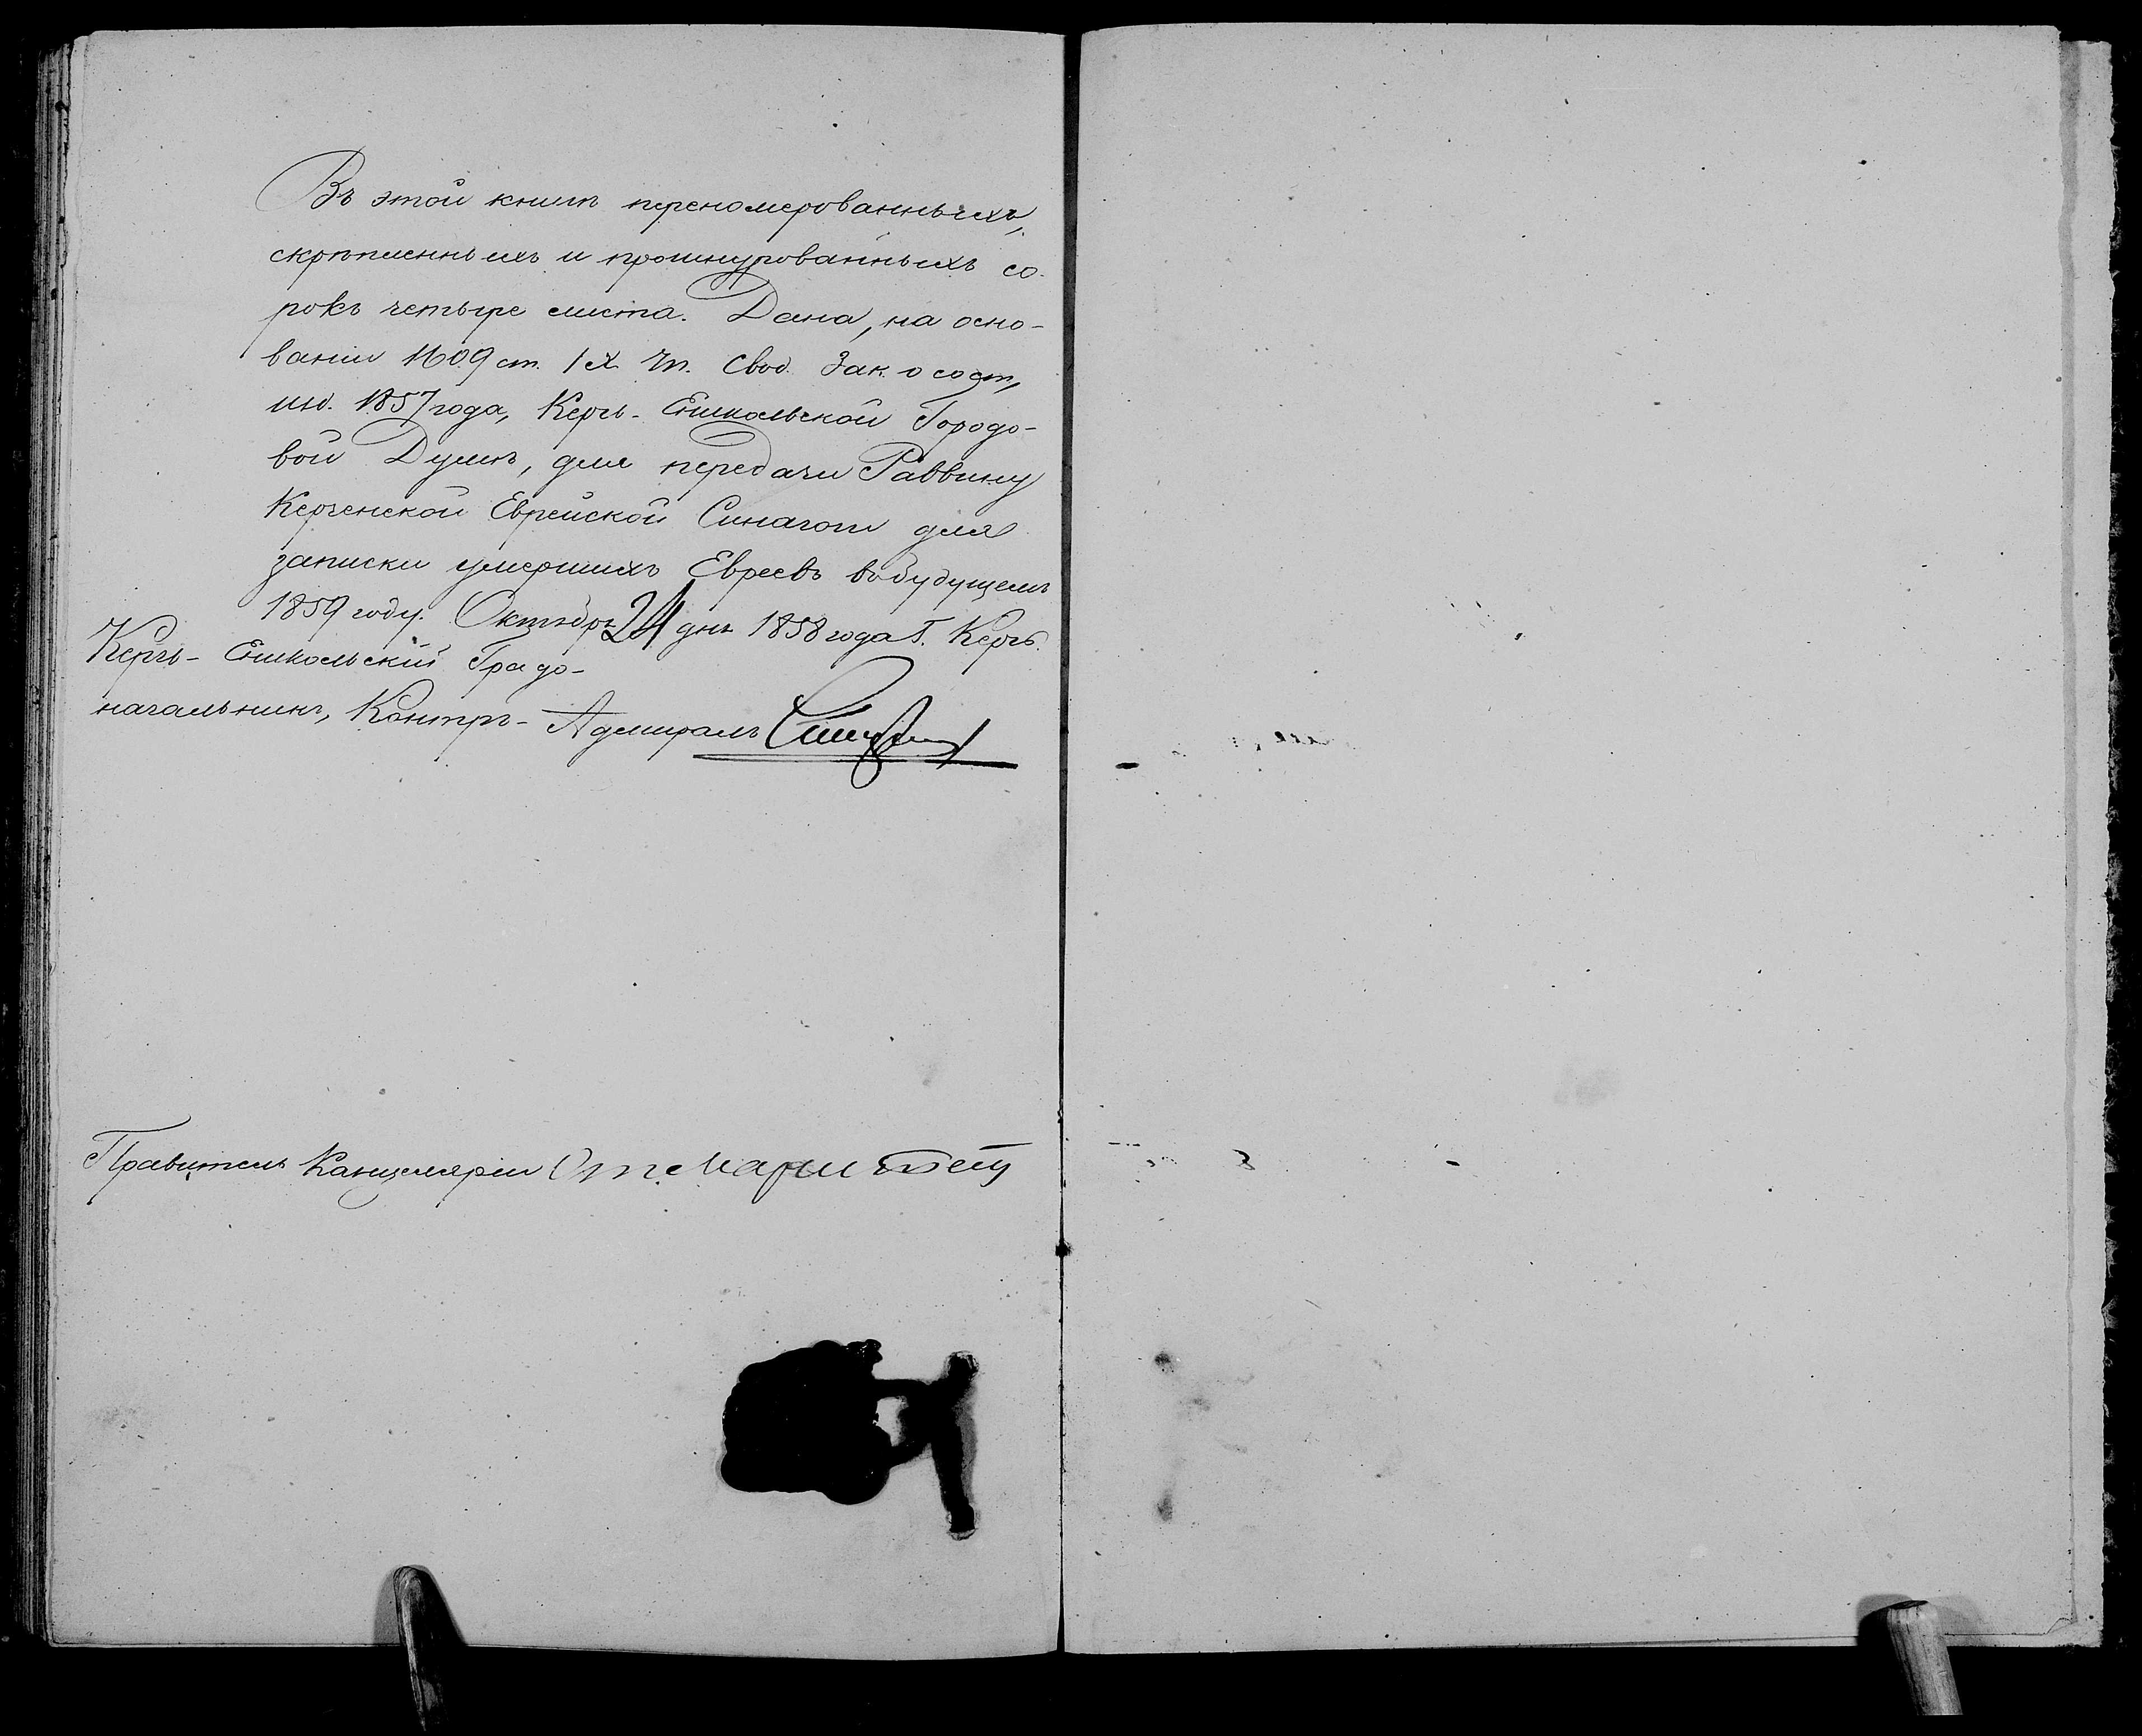 Въ этой книгѣ переномерованныхъ,
скрѣпленныхъ и прошнурованныхъ со-
рокъ четыре листа. Дана, на осно-
ваніи 1609 ст. IX т. Свод. Зак. о сост.,
изд. 1857 года, Керчь-Еникольской Городо-
вой Думѣ, для передачи Раввину
Керченской Еврейской Синагоги для
записки умершихъ Евреевъ въ будущемъ
1859 году. Октября 24 дня 1858 года Г. Керчь.
Керчь-Еникольскій Градо-
начальникъ, Контръ-Адмиралъ
Правитель Канцеляріи